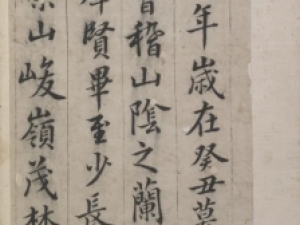 年歲在癸丑暮
稽山陰之蘭
賢畢至少長
山峻嶺茂林